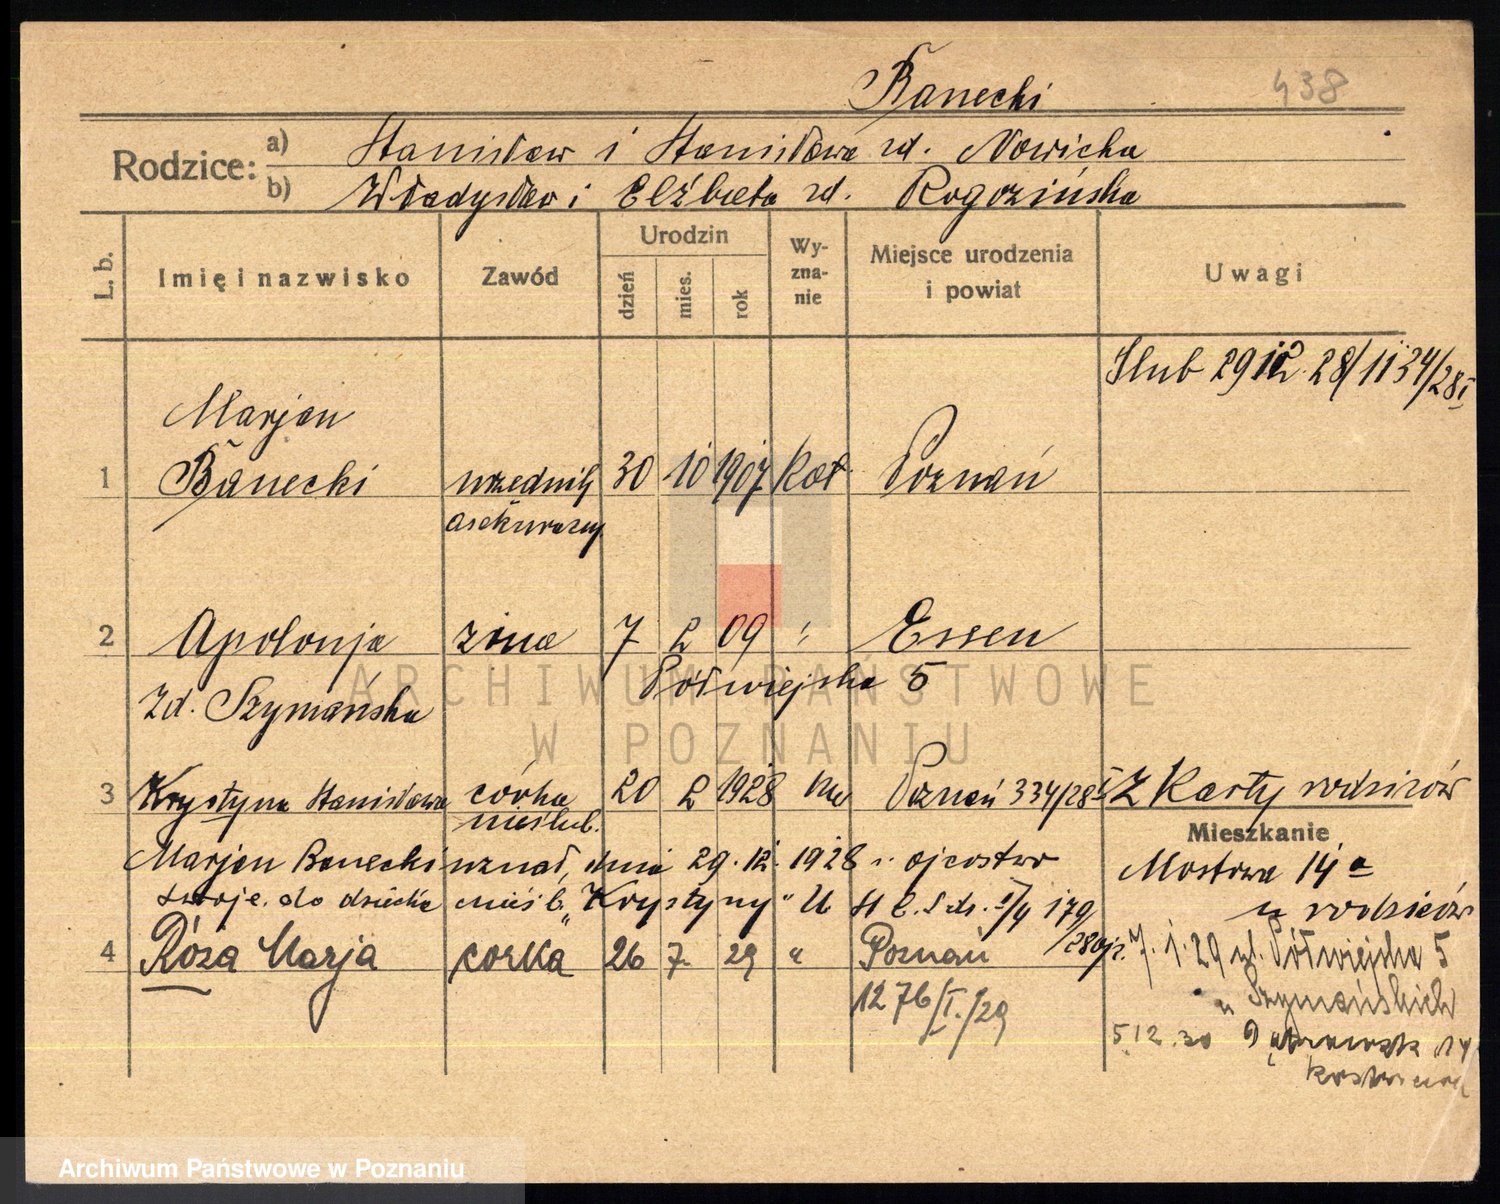 Banecki
438
Rodzice:
a) Stanisław i Stanisława zd. Nowicka
b) Władysław i Elżbieta zd. Rogozińska
L. b.
Imię i nazwisko
Zawód
Urodzin
dzień
mies.
rok
Wy-
zna-
nie
Miejsce urodzenia
i powiat
Uwagi
Ślub 29 12. 28/1134/28 I
Marjan
1 Banecki urzędnik 30 10 1907 kat. Poznań
asekuracyj.
2 Apolonja żona 7 2 09 " Essen
zd. Szymańska
Półwiejska 5
3 Krystyna Stanisława córka 20 2 1928 Poznań 334/28 I Z karty rodziców
nieślub.
Mieszkanie
Marjan Banecki uznał, dnia 29. 12. 1928 r. ojcostwo
Mostowa 14 a
swoje do dziecka nieśl. "Krystyny" U 179
/28
u rodziców
4 Róża Marja corka 26 7. 29 " Poznań
1276/I./29
7. 1. 29 ul. Półwiejska 5
u Szymańskich
5 12. 30 14
ARCHIWUM PAŃSTWOWE
W POZNANIU
Archiwum Państwowe w Poznaniu